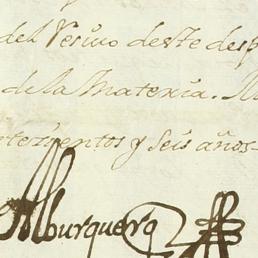 del Verino deste desp
de la Materia. M
etezientos y seis años
Alburquerq